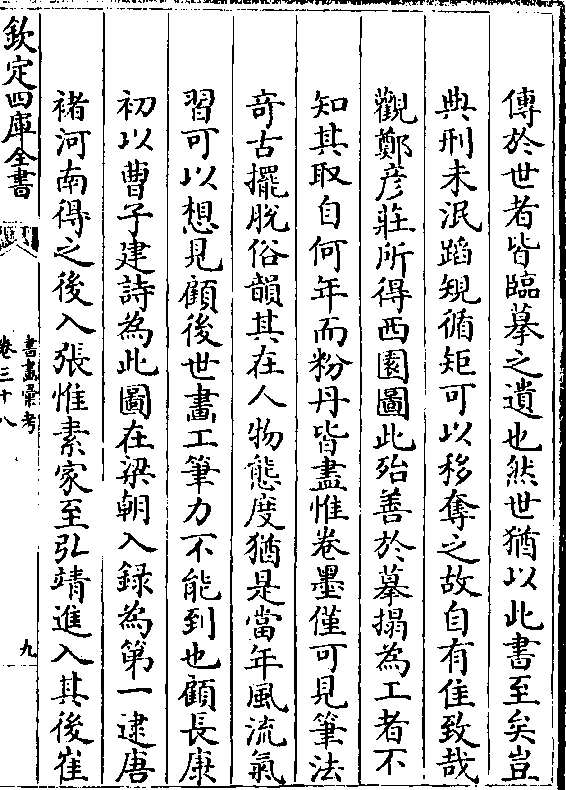 傳於世者皆臨摹之遺也然世猶以此書至矣豈
典刑未泯蹈規循矩可以移奪之故自有佳致哉
觀鄭彦莊所得西園圖此殆善於摹搨為工者不
知其取自何年而粉丹皆盡惟卷墨僅可見筆法
竒古擺脫俗韻其在人物態度猶是當年風流氣
習可以想見顧後世畫工筆力不能到也顧長康
初以曹子建詩為此圖在梁朝入録為第一逮唐
褚河南得之後入張惟素家至弘靖進入其後崔
欽定四庫全書
書畫彚考
卷三十八
九